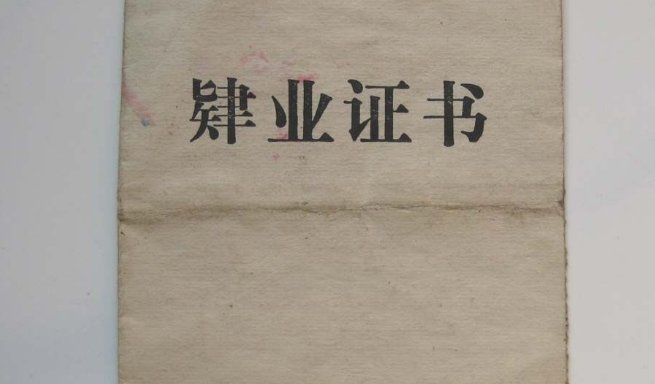 肄业证书